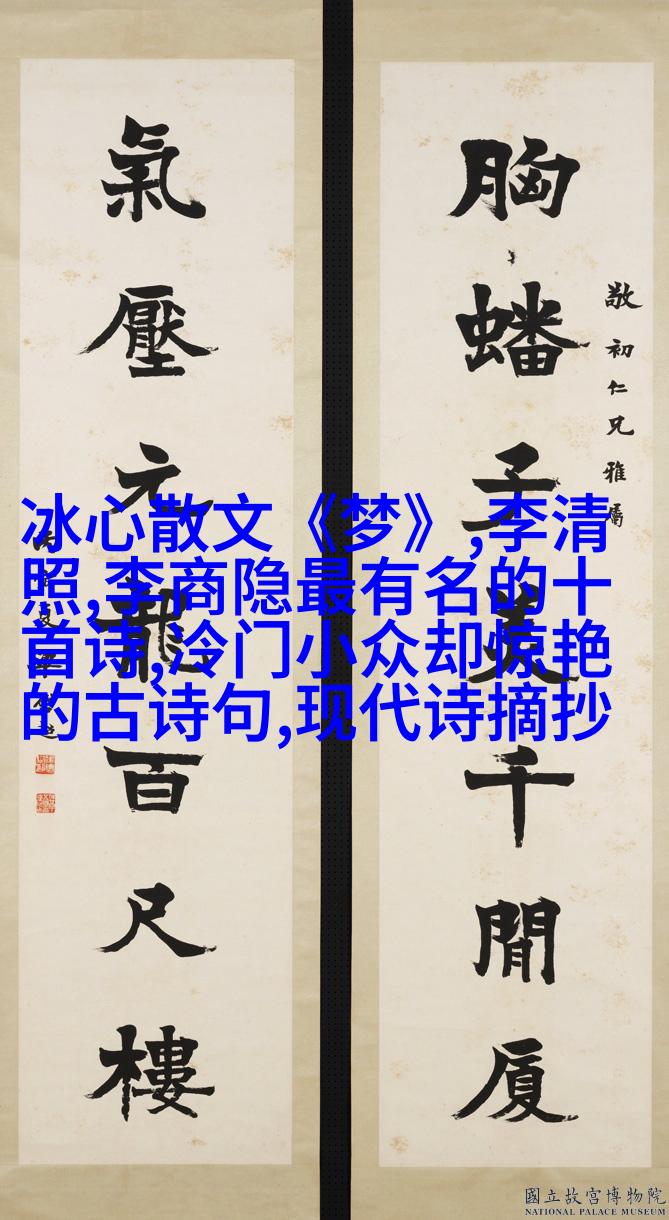 胸蟠子美千間厦
敬初仁兄雅屬
氣壓元龍百尺樓
冰心散文《梦》,李清
照,李商隐最有名的十
首诗,泠门小众却惊艳
的古诗句,现代诗摘抄
國立故宮博物院
NATIONAL PALACE MUSEUM